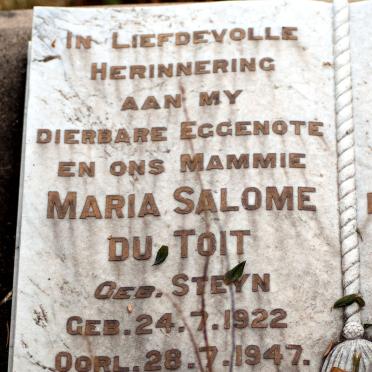 In Liefdevolle
Herinnering
aan my
dierbare Eggenote
en ons Mammie
Maria Salome
du Toit
Geb. Steyn
Geb. 24.7.1922
Oorl. 28.7.1947.